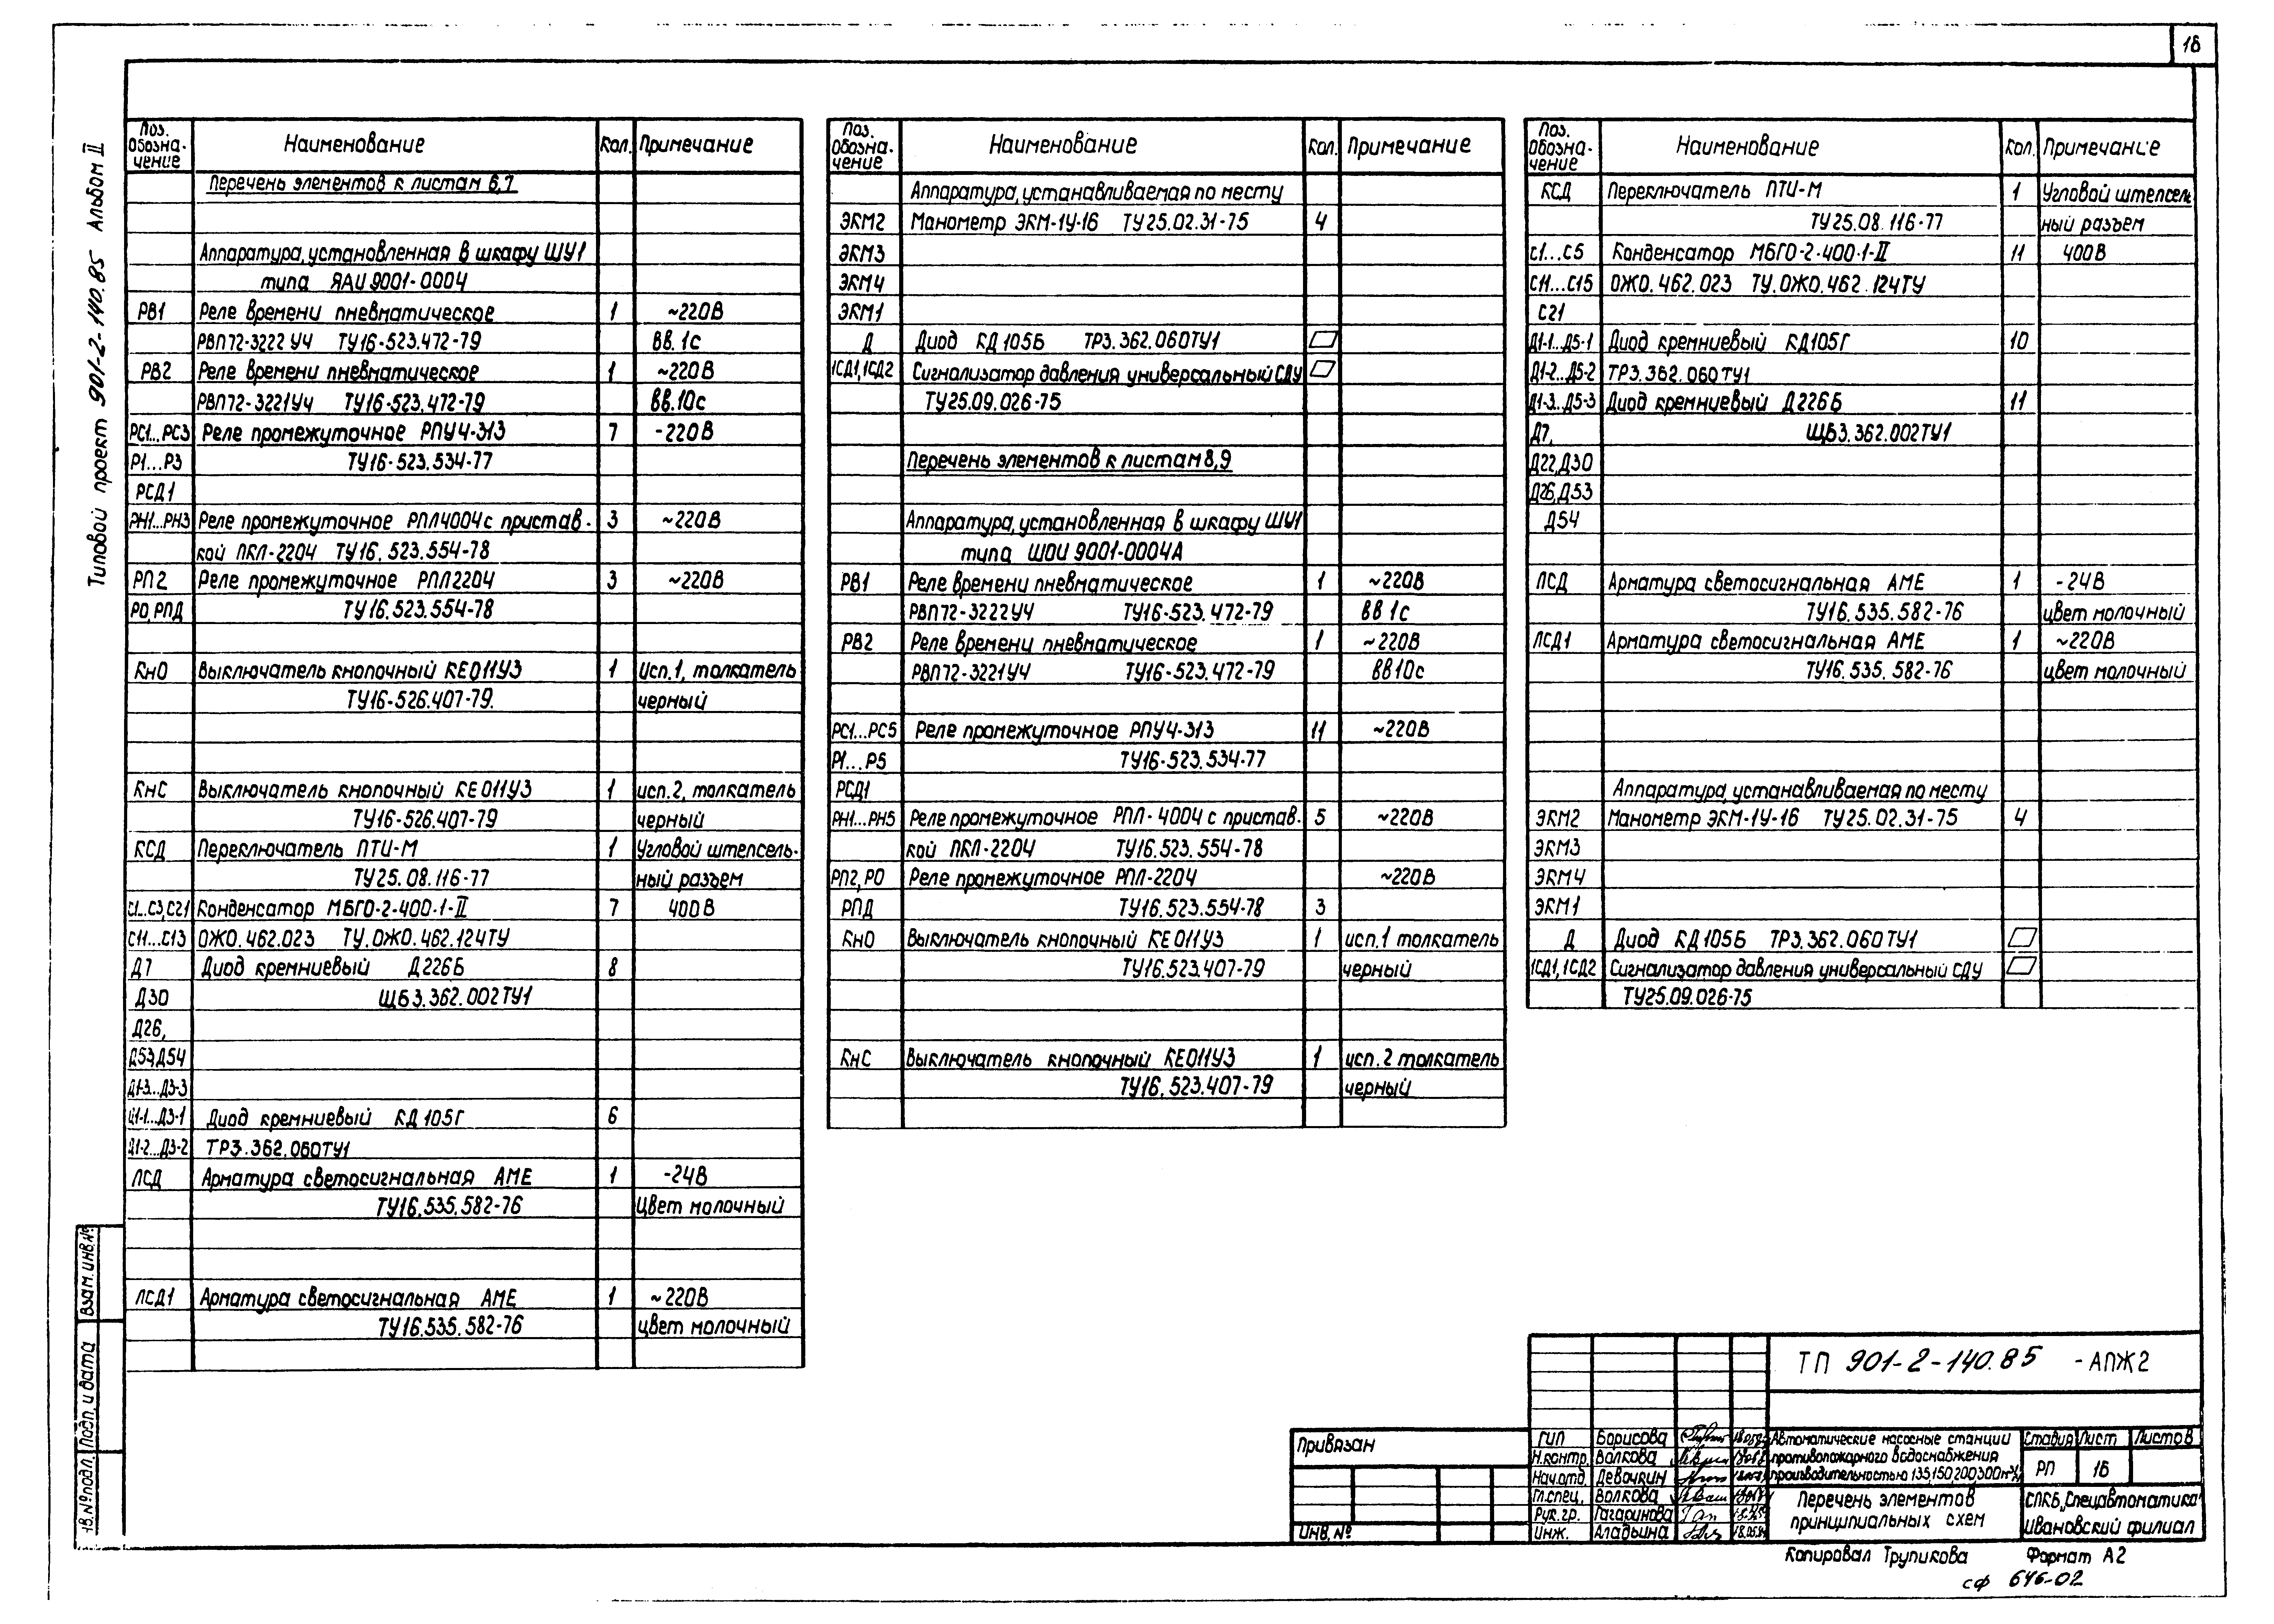 16
Типовой проект 901-2-140.85 Альбом II
Поз. обозна-чение Наименование Кол. Примечание
Перечень элементов к листам 6,7
Аппаратура, установленная в шкафу ШУ1
типа ЯАU 9001-0004
РВ1 Реле времени пневматическое 1 ~220В
РВП72-3222 У4 ТУ16-523.472-79 вв. 1с
РВ2 Реле времени пневматическое 1 ~220В
РВП72-3221У4 ТУ16-523.472-79 вв.10с
РС1...РС3 Реле промежуточное РПУ4-313 7 -220В
Р1...Р3 ТУ16-523.534-77
РСД1
РН1...РН3 Реле промежуточное РПЛ4004с пристав- 3 ~220В
кой ПКЛ-2204 ТУ16.523.554-78
РП2 Реле промежуточное РПЛ2204 3 ~220В
РО,РПД ТУ16.523.554-78
КнО Выключатель кнопочный КЕ011У3 1 Исп.1, толкатель
ТУ16-526.407-79. черный
КнС Выключатель кнопочный КЕ011У3 1 исп.2, толкатель
ТУ16-526.407-79 черный
КСД Переключатель ПТИ-М 1 Угловой штепсель-
ТУ25.08.116-77 ный разъем
С1...С3,С21 Конденсатор МБГО-2-400-1-II 7 400В
С11...С13 ОЖО.462.023 ТУ.ОЖО.462.124ТУ
Д7 Диод кремниевый Д226Б 8
Д30 ЩБ3.362.002ТУ1
Д26,
Д53,Д54
Д1-3...Д3-3
Д1-1...Д3-1 Диод кремниевый КД105Г 6
Д1-2...Д3-2 ТР3.362.060ТУ1
ЛСД Арматура светосигнальная АМЕ 1 -24В
ТУ16.535.582-76 Цвет молочный
ЛСД1 Арматура светосигнальная АМЕ 1 ~220В
ТУ16.535.582-76 цвет молочный
Поз. обозна-чение Наименование Кол. Примечание
Аппаратура, устанавливаемая по месту
ЭКМ2 Манометр ЭКМ-1У-16 ТУ25.02.31-75 4
ЭКМ3
ЭКМ4
ЭКМ1
Д Диод КД105Б ТР3.362.060ТУ1
1СД1,1СД2 Сигнализатор давления универсальный СДУ
ТУ25.09.026-75
Перечень элементов к листам 8,9
Аппаратура, установленная в шкафу ШУ1
типа ШОИ 9001-0004А
РВ1 Реле времени пневматическое 1 ~220В
РВП72-3222У4 ТУ16-523.472-79 вв 1с
РВ2 Реле времени пневматическое 1 ~220В
РВП72-3221У4 ТУ16-523.472-79 вв10с
РС1...РС5 Реле промежуточное РПУ4-313 11 ~220В
Р1...Р5 ТУ16-523.534-77
РСД1
РН1...РН5 Реле промежуточное РПЛ-4004 с пристав- 5 ~220В
кой ПКЛ-2204 ТУ16.523.554-78
РП2,РО Реле промежуточное РПЛ-2204 ~220В
РПД ТУ16.523.554-78 3
КнО Выключатель кнопочный КЕ011У3 1 исп.1 толкатель
ТУ16.523.407-79 черный
КнС Выключатель кнопочный КЕ011У3 1 исп.2 толкатель
ТУ16.523.407-79 черный
Поз. обозна-чение Наименование Кол. Примечание
КСД Переключатель ПТИ-М 1 Угловой штепсель
ТУ25.08.116-77 ный разъем
С1...С5 Конденсатор МБГО-2-400-1-II 11 400В
С11...С15 ОЖО.462.023 ТУ.ОЖО.462.124ТУ
С21
Д1-1...Д5-1 Диод кремниевый КД105Г 10
Д1-2...Д5-2 ТР3.362.060ТУ1
Д1-3...Д5-3 Диод кремниевый Д226Б 11
Д7, ЩБ3.362.002ТУ1
Д22,Д30
Д26,Д53
Д54
ЛСД Арматура светосигнальная АМЕ 1 -24В
ТУ16.535.582-76 цвет молочный
ЛСД1 Арматура светосигнальная АМЕ 1 ~220В
ТУ16.535.582-76 цвет молочный
Аппаратура, устанавливаемая по месту
ЭКМ2 Манометр ЭКМ-1У-16 ТУ25.02.31-75 4
ЭКМ3
ЭКМ4
ЭКМ1
Д Диод КД105Б ТР3.362.060ТУ1
1СД1,1СД2 Сигнализатор давления универсальный СДУ
ТУ25.09.026-75
Взам.инв.№
Подп. и дата
нв.№подл.
Привязан
Инв.№
ТП 901-2-140.85 -АПЖ2
ГИП Борисова
Н.контр. Волкова
Нач.отд. Девочкин
Гл.спец. Волкова
Рук.гр. Гагаринова
Инж. Аладьина 18.05.84
Автоматические насосные станции
противопожарного водоснабжения
производительностью 135,150,200,300м³/ч
Стадия Лист Листов
РП 16
Перечень элементов
принципиальных схем
СПКБ „Спецавтоматика"
Ивановский филиал
Копировал Трупикова Формат А2
сф 646-02